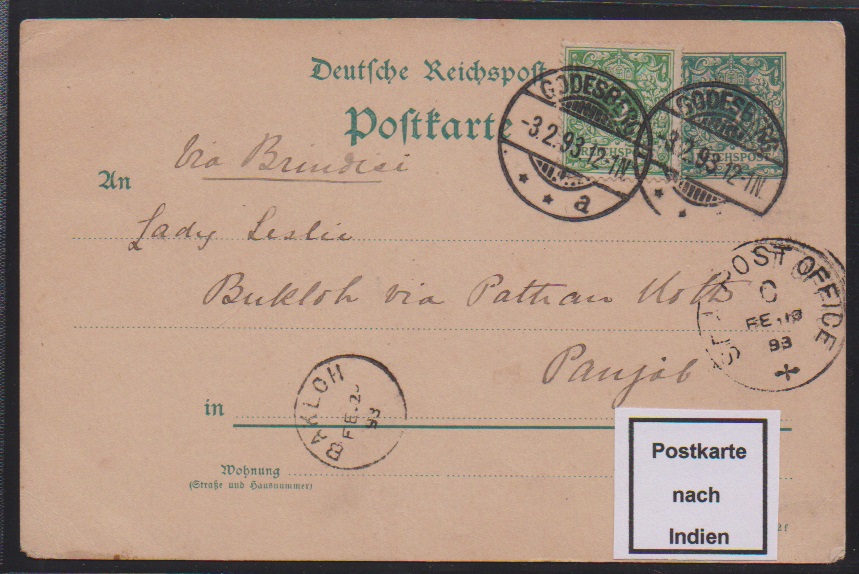 Deutsche Reichspost
Postkarte
GODESBERG
-3.2.93.12-1N.
a
REICHSPOST
GODESBERG
2.93.12-1N.
REICHSPOST
Via Brindisi
An
Lady Leslie
Bukloh via Pathan
Panjab
SEA POST OFFICE
C
FE
93
BAKLOH
FE
93
in
Wohnung
(Straße und Hausnummer)
Postkarte
nach
Indien